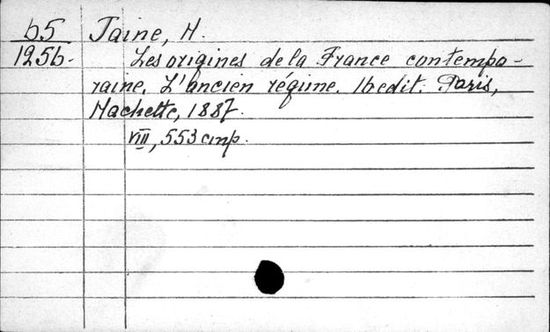 b5 Taine, H.
1256. Les origines de la France contempo-
raine. L'ancien régime. 16 edit. Paris,
Hachette, 1887.
VIII, 553 стр.